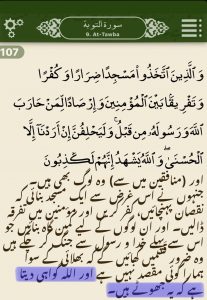 سورة التوبة
9. At-Tawba
107
وَالَّذِينَ اتَّخَذُوا مَسْجِدًا ضِرَارًا وَكُفْرًا
وَتَفْرِيقًا بَيْنَ الْمُؤْمِنِينَ وَإِرْصَادًا لِّمَنْ حَارَبَ
اللَّهَ وَرَسُولَهُ مِن قَبْلُ ۚ وَلَيَحْلِفُنَّ إِنْ أَرَدْنَا إِلَّا
الْحُسْنَىٰ ۖ وَاللَّهُ يَشْهَدُ إِنَّهُمْ لَكَاذِبُونَ
اور (منافقین میں سے) وہ لوگ بھی ہیں۔
جنہوں نے اس غرض سے ایک مسجد بنائی کہ
نقصان پہنچائیں، کفر کریں اور مؤمنین میں تفرقہ
ڈالیں۔ اور ان لوگوں کے لیے کمین گاہ بنائیں جو
اس سے پہلے خدا و رسول سے جنگ کر چکے ہیں
وہ ضرور قسمیں کھائیں گے کہ بھلائی کے سوا
ہمارا کوئی مقصد نہیں ہے اور اللہ گواہی دیتا
ہے کہ یہ جھوٹے ہیں۔